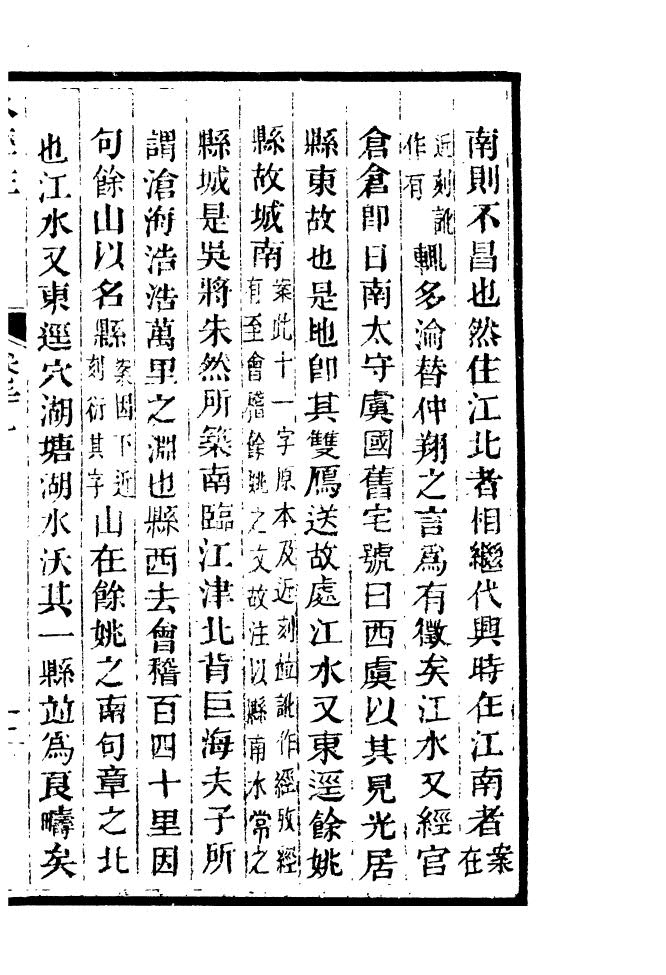 南則不昌也然住江北者相繼代興時在江南者案在
近刻訛作有輒多淪替仲翔之言為有徵矣江水又經官
倉倉即日南太守虞國舊宅號曰西虞以其兄光居
縣東故也是地即其雙鴈送故處江水又東逕餘姚
縣故城南案此十一字原本及近刻竝訛作經攷經有至會稽餘姚之文故注以縣南水常之
縣城是吳將朱然所築南臨江津北背巨海夫子所
謂滄海浩浩萬里之淵也縣西去會稽百四十里因
句餘山以名縣案因下近刻衍其字山在餘姚之南句章之北
也江水又東逕穴湖塘湖水沃其一縣竝為良疇矣